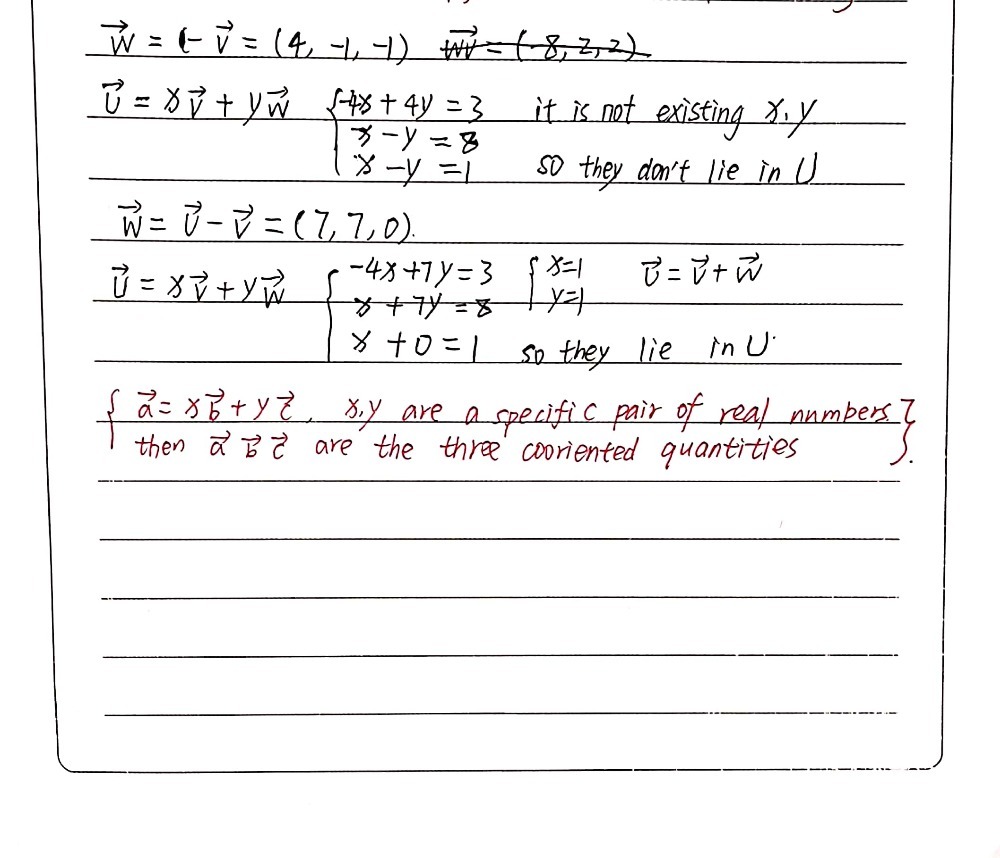 w⃗ = (- v⃗ = (4, -1, -1) w⃗ = (-8, 2, 2)
u⃗ = xv⃗ + yw⃗ {-4x + 4y = 3 it is not existing x, y
x - y = 8
x - y = 1 so they don't lie in U
w⃗ = u⃗ - v⃗ = (7, 7, 0).
u⃗ = xv⃗ + yw⃗ { -4x + 7y = 3 { x=1 u⃗ = v⃗ + w⃗
x + 7y = 8 y=1
x + 0 = 1 so they lie in U.
{ a⃗ = xb⃗ + yc⃗, x, y are a specific pair of real numbers. }
then a⃗ b⃗ c⃗ are the three cooriented quantities .